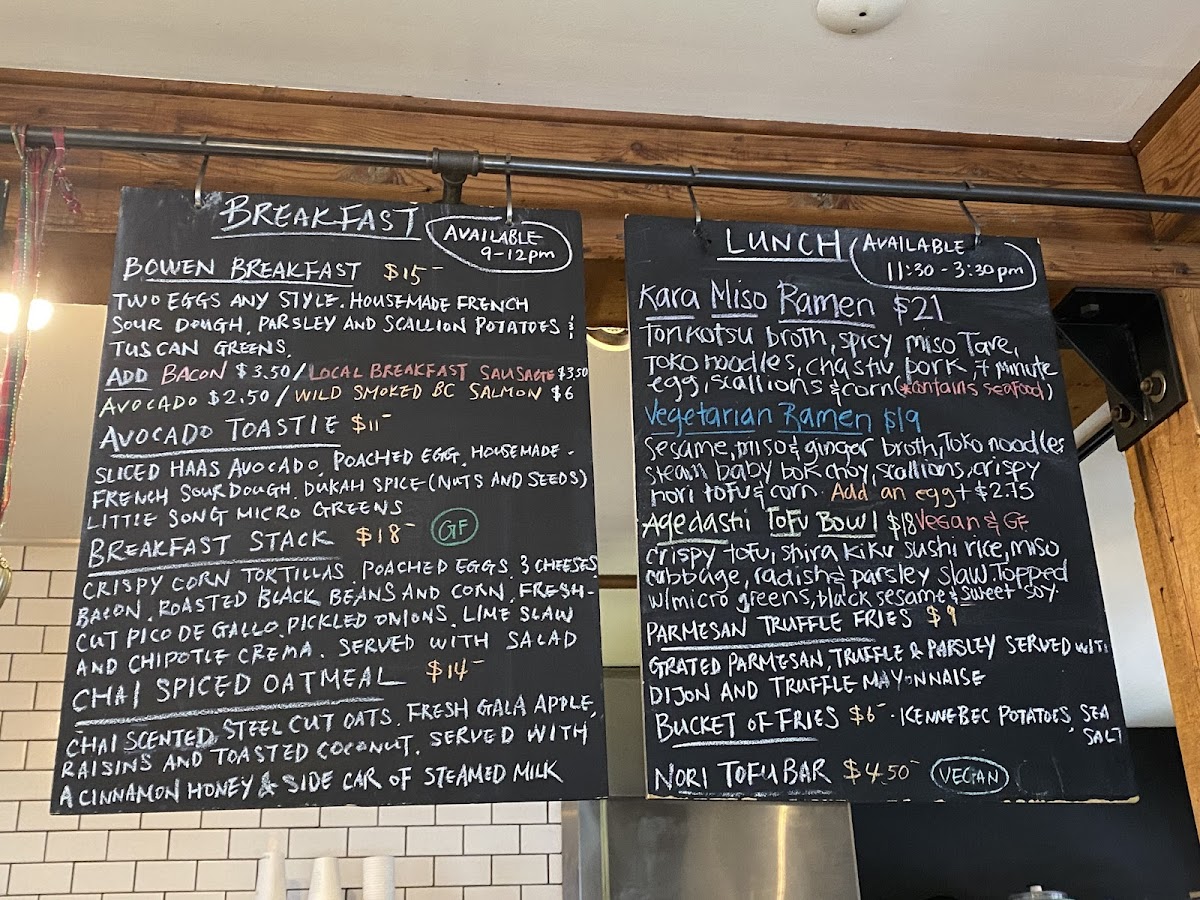 BREAKFAST
AVAILABLE
9-12pm
BOWEN BREAKFAST $15-
TWO EGGS ANY STYLE. HOUSEMADE FRENCH
SOUR DOUGH, PARSLEY AND SCALLION POTATOES &
TUSCAN GREENS.
ADD BACON $3.50/LOCAL BREAKFAST SAUSAGE $3.50
AVOCADO $2.50/WILD SMOKED BC SALMON $6
AVOCADO TOASTIE $11-
SLICED HAAS AVOCADO, POACHED EGG, HOUSEMADE-
FRENCH SOURDOUGH. DUKAH SPICE (NUTS AND SEEDS)
LITTLE SONG MICRO GREENS
BREAKFAST STACK $18- GF
CRISPY CORN TORTILLAS. POACHED EGGS. 3 CHEESES.
BACON. ROASTED BLACK BEANS AND CORN. FRESH-
CUT PICO DE GALLO. PICKLED ONIONS. LIME SLAW
AND CHIPOTLE CREMA. SERVED WITH SALAD
CHAI SPICED OATMEAL $14-
CHAI SCENTED STEEL CUT OATS. FRESH GALA APPLE,
RAISINS AND TOASTED COCONUT. SERVED WITH
A CINNAMON HONEY & SIDE CAR OF STEAMED MILK
LUNCH
AVAILABLE
11:30-3:30pm
Kara Miso Ramen $21
Tonkotsu broth, spicy miso Tare,
Toko noodles, chastiu pork, 7 minute
egg, scallions & corn (*contains seafood)
Vegetarian Ramen $19
Sesame, miso & ginger broth, Toko noodles
steam baby bok choy, scallions, crispy
nori tofu & corn. Add an egg + $2.75
Agedashi Tofu Bowl $18 Vegan & GF
crispy tofu, shira kiku sushi rice, miso
cabbage, radish & parsley slaw. Topped
w/micro greens, black sesame & sweet soy.
PARMESAN TRUFFLE FRIES $9
GRATED PARMESAN, TRUFFLE & PARSLEY SERVED WITH
DIJON AND TRUFFLE MAYONNAISE
BUCKET OF FRIES $6- · KENNEBEC POTATOES, SEA
SALT
NORI TOFU BAR $4.50- VEGAN